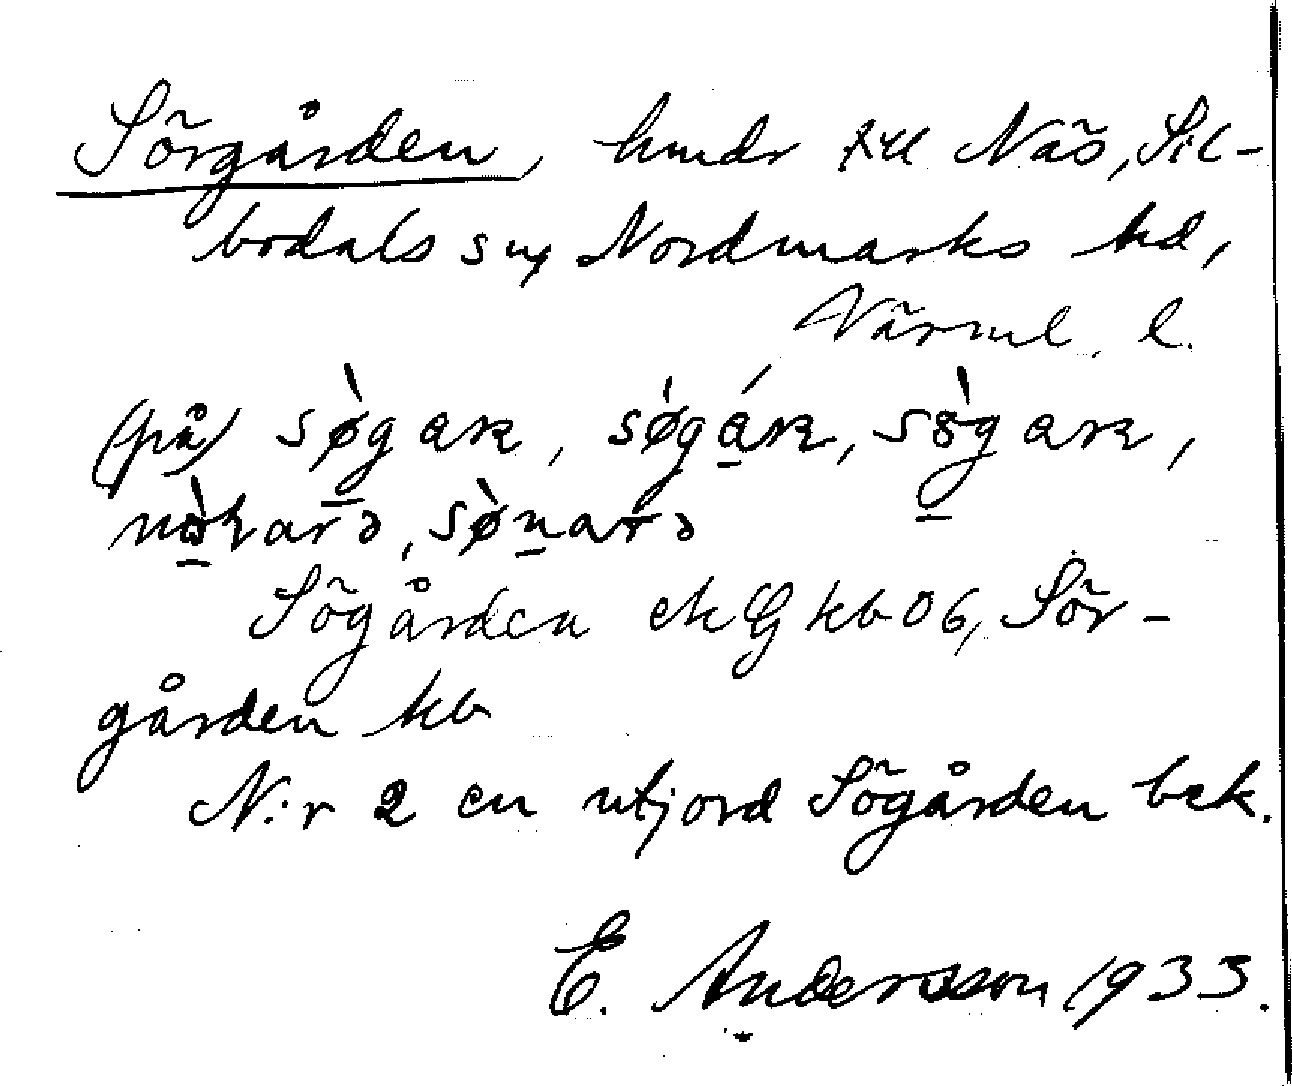 Sörgården, hmdr till Näs, Sil-
bodals sn, Nordmarks hd,
Värml. l.
(på) sø̀gaʀ, søgáʀ, sògaʀ,
sø̀narə
Sögården ek G kb 06, Sör-
gården kb
N:r 2 en utjord Sögården bek.
E. Andersson 1933.